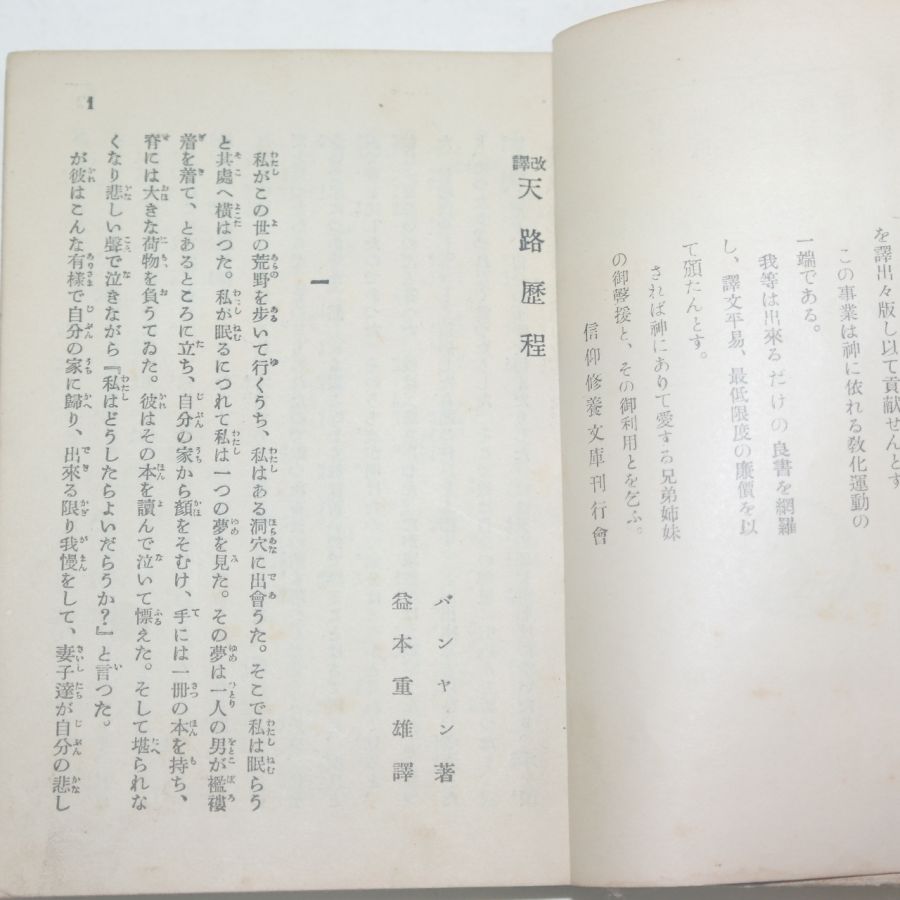 を譯出々版し以て貢献せんとす
この事業は神に依れる敎化運動の
一端である。
我等は出來るだけの良書を網羅
し、譯文平易、最低限度の廉價を以
て頒たんとす。
されば神にありて愛する兄弟姉妹
の御聲援と、その御利用とを乞ふ。
信仰修養文庫刊行會
改譯 天路歷程
バンヤン著
益本重雄譯
一
私がこの世の荒野を歩いて行くうち、私はある洞穴に出會うた。そこで私は眠らう
と其處へ橫はつた。私が眠るにつれて私は一つの夢を見た。その夢は一人の男が襤褸
着を着て、とあるところに立ち、自分の家から顔をそむけ、手には一冊の本を持ち、
脊には大きな荷物を負うてゐた。彼はその本を讀んで泣いて慄えた。そして堪られな
くなり悲しい聲で泣きながら『私はどうしたらよいだらうか?』と言つた。
が彼はこんな有樣で自分の家に歸り、出來る限り我慢をして、妻子達が自分の悲し
1